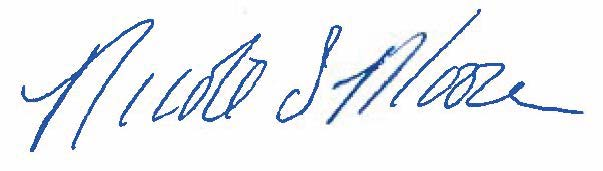 Nicole S Moore